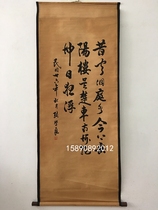 昔聞洞庭水今上岳
陽樓吳楚東南坼乾
坤日夜浮
15890892012